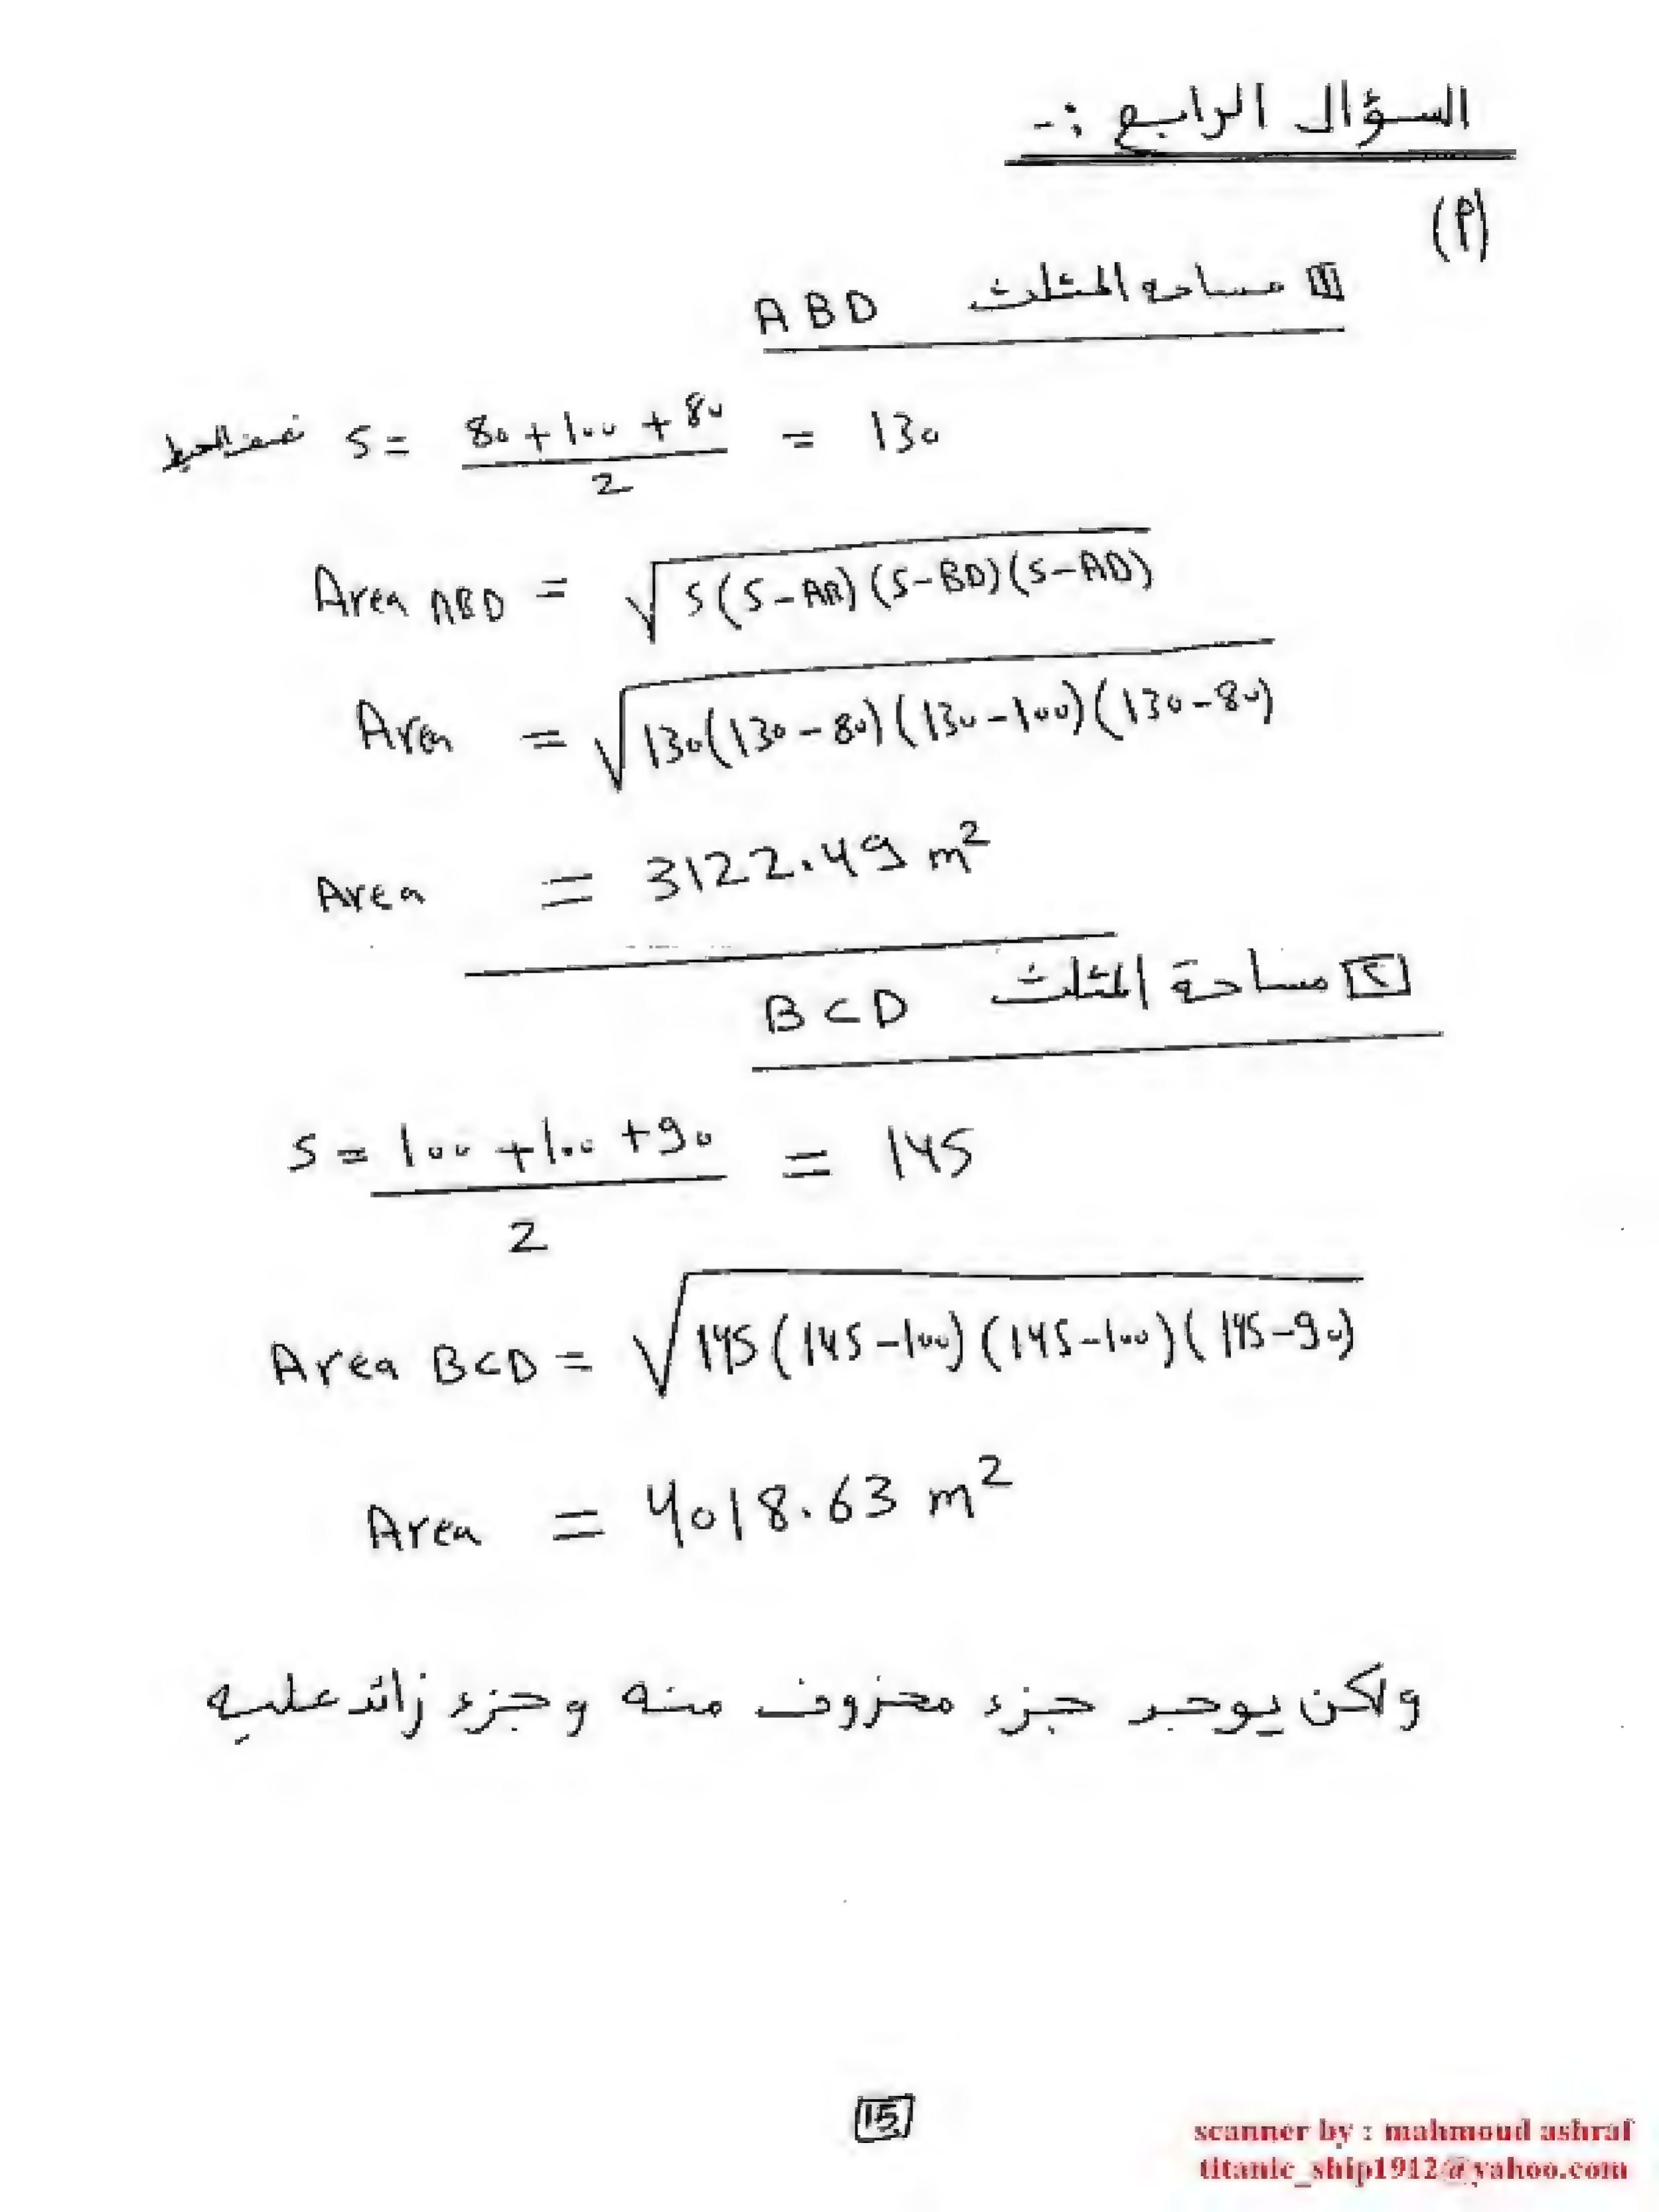 السؤال الرابع :-
(أ)
[1] مساحة المثلث ABD
نصف المحيط S = (80 + 100 + 80) / 2 = 130
Area ABD = √S(S-AB)(S-BD)(S-AD)
Area = √130(130-80)(130-100)(130-80)
Area = 3122.49 m²
[٢] مساحة المثلث BCD
S = (100 + 100 + 90) / 2 = 145
Area BCD = √145(145-100)(145-100)(145-90)
Area = 4018.63 m²
ولكن يوجد جزء محزوف منه وجزء زائد عليه
15
scanner by : mahmoud ashraf
titanic_ship1912@yahoo.com